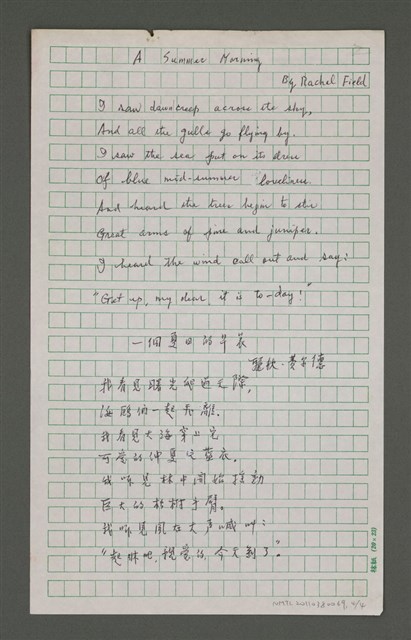 A Summer Morning
By Rachel Field
I saw dawn creep across the sky,
And all the gulls go flying by.
I saw the sea put on its dress
Of blue mid-summer loveliness.
And heard the trees begin to stir
Great arms of pine and juniper.
I heard the wind call out and say:
"Get up, my dear, it is to-day!"
一個夏日的早晨
瑟秋·費尔德
我看見曙光爬過天際,
海鷗們一起飛離.
我看見大海穿上它
可愛的仲夏之藍衣.
我听見林中開始拴動
巨大的松树手臂.
我听見風在大声喊叫:
"起床吧,親愛的,今天到了."